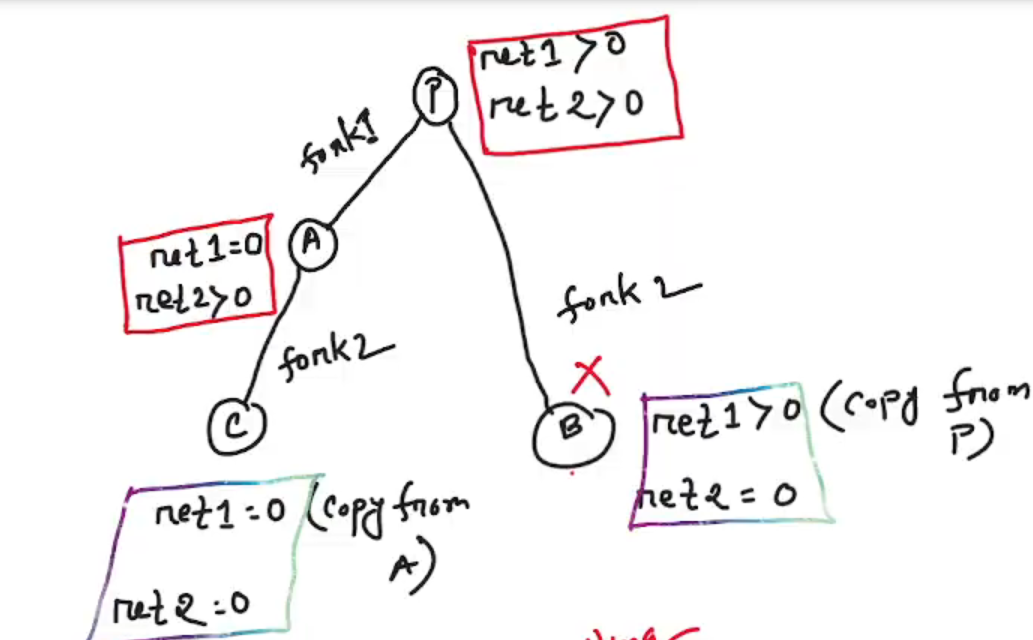 P
ret1>0
ret2>0
fork1
A
ret1=0
ret2>0
fork2
fork2
C
B
X
ret1>0 (copy from
P)
ret2=0
ret1=0 (copy from
A)
ret2=0